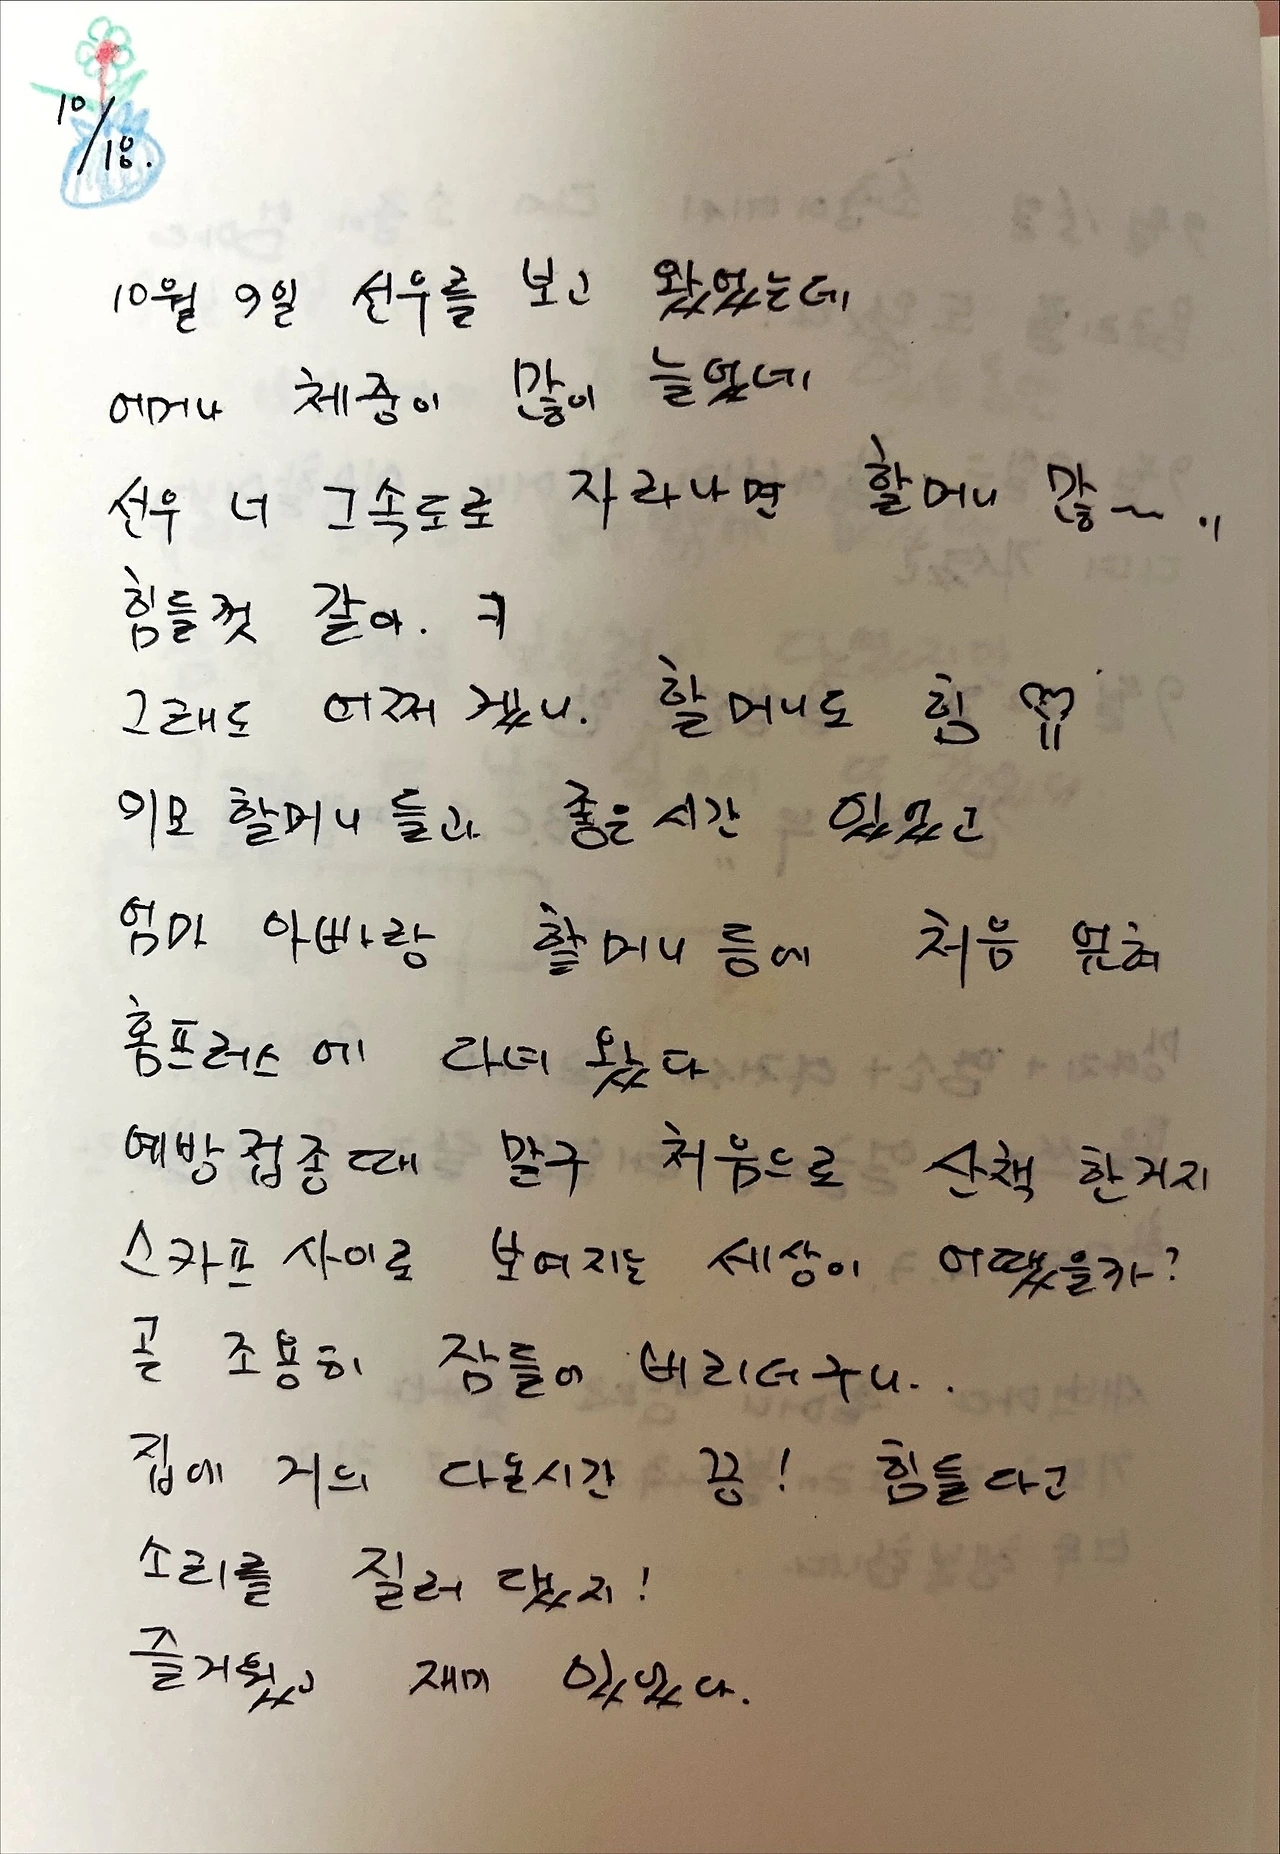 10/18.
10월 9일 선우를 보고 왔었는데
어머나 체중이 많이 늘었네
선우 너 그속도로 자라나면 할머니 많~이
힘들것 같아. ㅋ
그래도 어쩌겠니. 할머니도 힘
이모할머니들과 좋은시간 있었고
엄마 아빠랑 할머니등에 처음 업혀
홈프러스에 다녀왔다
예방접종때 말구 처음으로 산책 한거지
스카프 사이로 보여지는 세상이 어땠을까?
곧 조용히 잠들어 버리더구나..
집에 거의 다온시간 끙! 힘들다고
소리를 질러 댔지!
즐거웠고 재미 있었다.